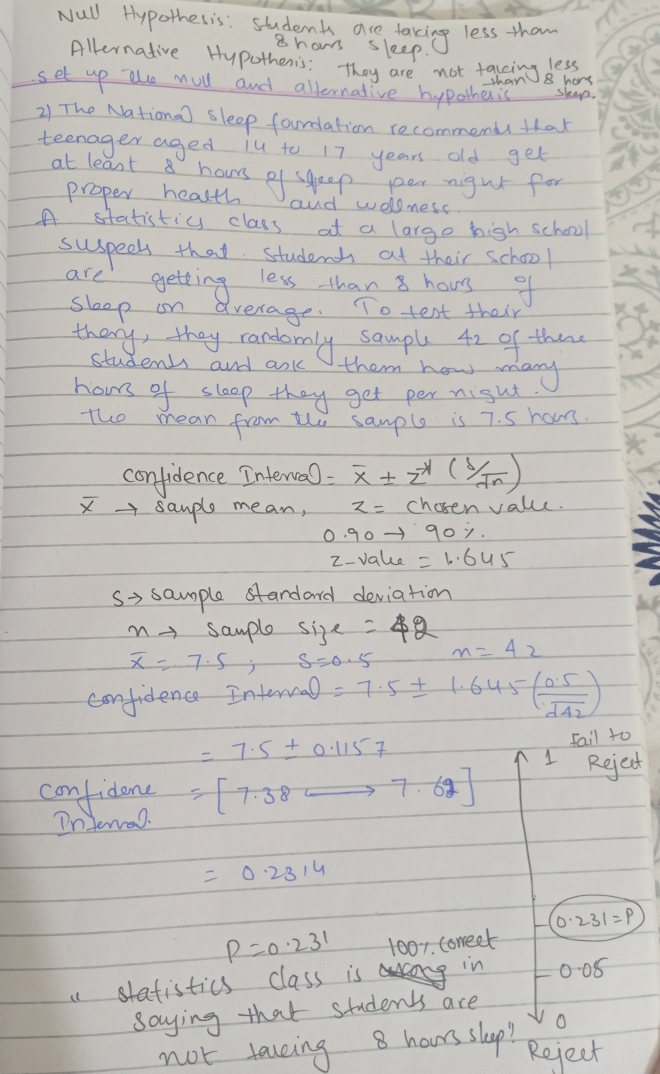 Null Hypothesis: Students are taking less than
8 hours sleep.
Alternative Hypothesis: They are not taking less
than 8 hors
sleep.
set up the null and alternative hypothesis
2) The National sleep foundation recommends that
teenager aged 14 to 17 years old get
at least 8 hours of sleep per night for
proper health and wellness.
A statistics class at a large high school
suspects that students at their school
are getting less than 8 hours of
sleep on average. To test their
theory, they randomly sample 42 of these
students and ask them how many
hours of sleep they get per night.
The mean from the sample is 7.5 hours.
Confidence Interval = x̄ ± z* (s/√n)
x̄ → sample mean, z = chosen value.
0.90 → 90%.
z-value = 1.645
s → sample standard deviation
n → sample size = 42
x̄ = 7.5 ; s=0.5 n = 42
Confidence Interval = 7.5 ± 1.645 (0.5/√42)
= 7.5 ± 0.1157
Confidene = [7.38 ⟷ 7.62]
Interval.
= 0.2314
1 Fail to
Reject
0.231 = P
0.05
0
Reject
P = 0.231
100% correct
" statistics class is wrong in
saying that students are
not taking 8 hours sleep"